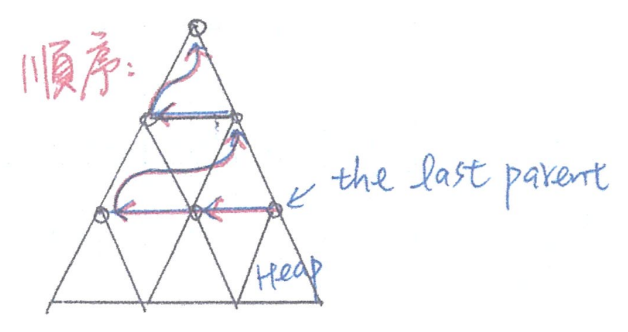 順序:
the last parent
Heap